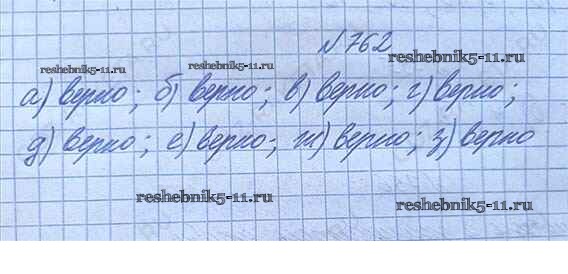 № 762
reshebnik5-11.ru
reshebnik5-11.ru reshebnik5-11.ru
а) верно; б) верно; в) верно; г) верно;
д) верно; е) верно; ж) верно; з) верно
reshebnik5-11.ru reshebnik5-11.ru